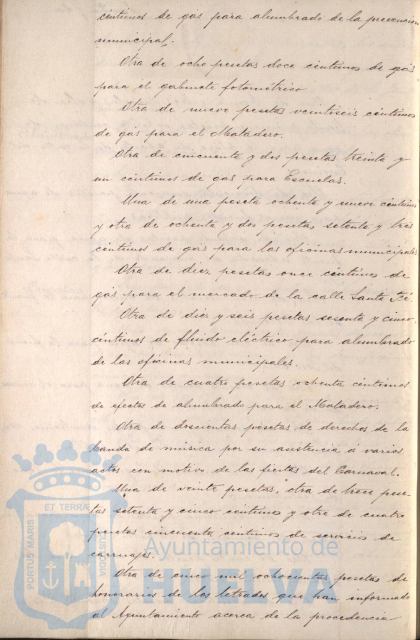 céntimos de gas para alumbrado de la prevención
municipal.
Otra de ocho pesetas doce céntimos de gas
para el gabinete fotométrico
Otra de nueve pesetas veintiseis céntimos
de gas para el Matadero.
Otra de cincuenta y dos pesetas treinta y
un céntimos de gas para Escuelas.
Una de una peseta ochenta y nueve céntimos
y otra de ochenta y dos pesetas setenta y tres
céntimos de gas para las oficinas municipales
Otra de diez pesetas once céntimos de
gas para el mercado de la calle Santa Fé
Otra de diez y seis pesetas sesenta y cinco
céntimos de fluido eléctrico para alumbrado
de las oficinas municipales.
Otra de cuatro pesetas ochenta céntimos
de efectos de alumbrado para el Matadero.
Otra de doscuentas pesetas de derechos de la
banda de música por su asistencia a varios
actos con motivo de las fiestas del Carnaval.
Una de veinte pesetas, otra de trece pese-
tas setenta y cinco céntimos y otra de cuatro
pesetas cincuenta céntimos de servicio de
carruajes.
Otra de cinco mil ochocientas pesetas de
honorarios de los letrados que han informado
al Ayuntamiento acerca de la procedencia
ET TERRÆ
PORTUS MARIS
CUSTODIA
Ayuntamiento de
HUELVA